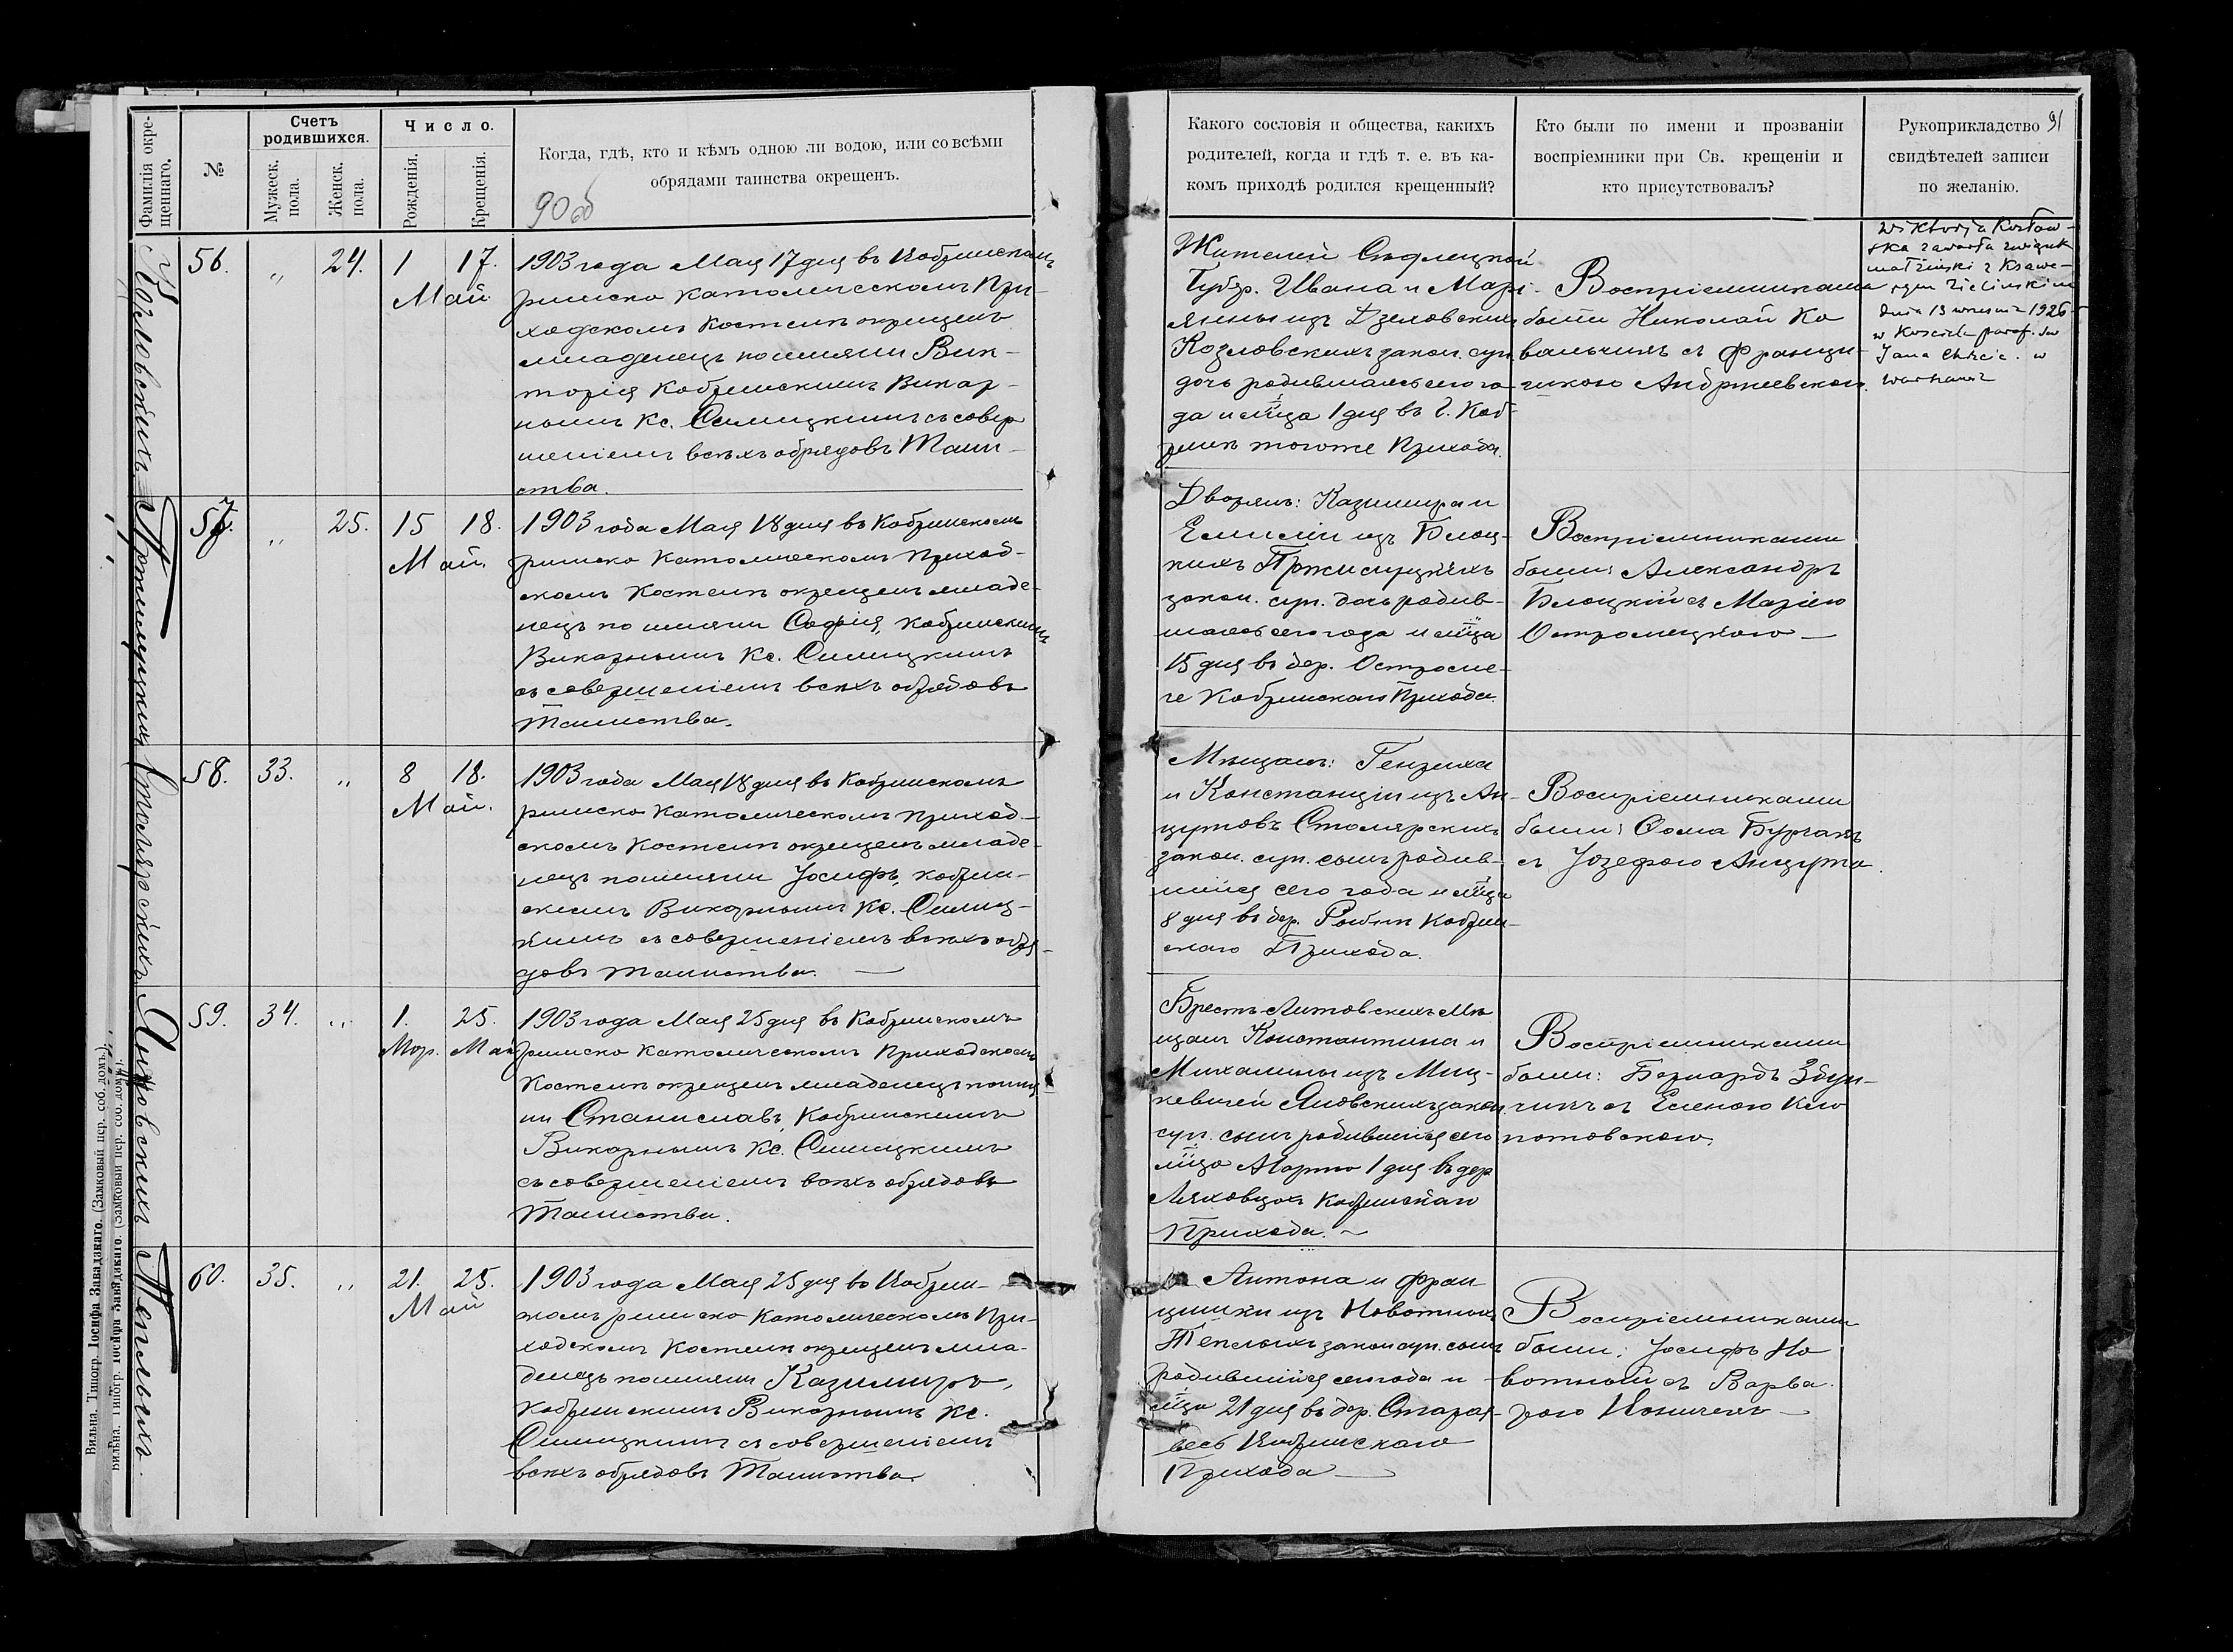 Фамилія окре-
щеннаго.
№
Счетъ
родившихся.
Мужеск.
пола.
Женск.
пола.
Число.
Рожденія.
Крещенія.
Когда, гдѣ, кто и кѣмъ одною ли водою, или со всѣми
обрядами таинства окрещенъ.
90об
Козловскихъ
56.
„
24.
1
17.
Май.
1903 года Мая 17 дня въ Кобринскомъ
римско Католическомъ При-
ходскомъ Костелѣ окрещенъ
младенецъ по имени Вик-
торія Кобринскимъ Викар-
нымъ Кс. Силицкимъ съ совер
шеніемъ всѣхъ обрядовъ Таин-
ства.
57.
„
25.
15
18.
Май.
1903 года Мая 18 дня въ Кобринскомъ
римско Католическомъ Приход-
скомъ Костелѣ окрещенъ младе-
нецъ по имени Софія, Кобринскимъ
Викарнымъ Кс. Силицкимъ
съ совершеніемъ всѣхъ обрядовъ
Таинства.
Столярскихъ
58.
33.
„
8
18.
Май.
1903 года Мая 18 дня въ Кобринскомъ
римско Католическомъ Приход-
скомъ Костелѣ окрещенъ младе-
нецъ по имени Іосифъ, Кобрин-
скимъ Викарнымъ Кс. Силиц-
кимъ съ совершеніемъ всѣхъ обря-
довъ таинства.
Яновскихъ
59.
34.
„
1.
25.
Мар. Май
1903 года Мая 25 дня въ Кобринскомъ
римско Католическомъ Приходскомъ
Костелѣ окрещенъ младенецъ по име
ни Станиславъ, Кобринскимъ
Викарнымъ Кс. Силицкимъ
съ совершеніемъ всѣхъ обрядовъ
Таинства.
Теплыхъ.
60.
35.
„
21.
25.
Май
1903 года Мая 25 дня въ Кобрин-
скомъ римско Католическомъ При-
ходскомъ Костелѣ окрещенъ мла-
денецъ по имени Казимиръ,
Кобринскимъ Викарнымъ Кс.
Силицкимъ съ совершеніемъ
всѣхъ обрядовъ Таинства.
Вильна. Типогр. Іосифа Завадзкаго. (Замковый пер. соб. домъ.)
Вильна. Типогр. Іосифа Завадзкаго. (Замковый пер. соб. домъ.)
Какого сословія и общества, какихъ
родителей, когда и гдѣ т. е. въ ка-
комъ приходѣ родился крещенный?
Кто были по имени и прозванію
воспріемники при Св. крещеніи и
кто присутствовалъ?
Рукоприкладство
свидѣтелей записи
по желанію.
91
Жителей Сѣдлецкой
Губер. Ивана и Марі-
янны изъ Дзеховскихъ
Козловскихъ закон. суп.
дочь родившаяся сего го-
да и мѣца 1 дня въ г. Коб-
ринѣ тогоже Прихода.
Воспріемниками
были Николай Ко
вальчикъ съ Франци-
шкою Андржеевскою.
Wiktorja Kozłow-
ska zawarła związek
małżeński z Ksawe-
rym Zielińskim
dnia 13 września 1926
w Kościele paraf. św
Jana Chrzcic. w
Warszawie
Дворянъ: Казимира и
Емиліи изъ Блоц-
кихъ
закон. суп. дочь родив-
шаяся сего года и мѣца
15 дня въ дер. Остроме-
че Кобринскаго Прихода.
Воспріемниками
были: Александръ
Блоцкій съ Маріею
Остромецкою
Мѣщанъ: Генриха
и Констанціи изъ Ан-
цутовъ Столярскихъ
закон. суп. сынъ родив-
шійся сего года и мѣца
8 дня въ дер. Кобрин-
скаго Прихода.
Воспріемниками
были: Ѳома
съ Іозефою Анцута.
Брестъ-Литовскихъ Мѣ
щанъ Константина и
Михалины изъ Миц-
кевичей Яновскихъ закон.
суп. сынъ родившійся сего
мѣца Марта 1 дня въ дер
Ляховцахъ Кобринскаго
Прихода.
Воспріемниками
были: Бернардъ
съ Еленою Кло
потовскою.
Антона и Фран
цишки изъ Новотныхъ
Теплыхъ закон суп. сынъ
родившійся сего года и
мѣца 21 дня въ дер. Старая-
весь Кобринскаго
Прихода
Воспріемниками
были: Іосифъ Но
вотный съ Варва
рою